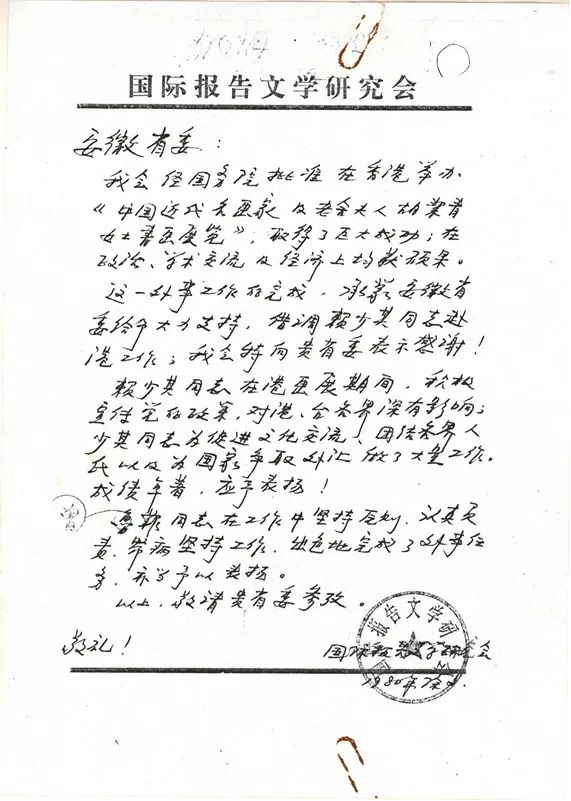 国际报告文学研究会
安徽省委：
我会经国务院批准在香港举办
《中国近代名画家及老舍夫人胡絜青
女士书画展览》，取得了巨大成功；在
政治、学术交流及经济上均获硕果。
这一外事工作的完成，承蒙安徽省
委给予大力支持，借调赖少其同志赴
港工作；我会特向贵省委表示感谢！
赖少其同志在港画展期间，积极
宣传党的政策，对港、台各界深有影响；
少其同志为促进文化交流、团结各界人
氏以及为国家争取外汇做了大量工作。
成绩卓著，应予表扬！
曾
同志在工作中坚持原则、认真负
责、带病坚持工作，出色地完成了外事任
务，亦当予以表扬。
以上，敬请贵省委参考。
敬礼！
国际报告文学研究会
1980年